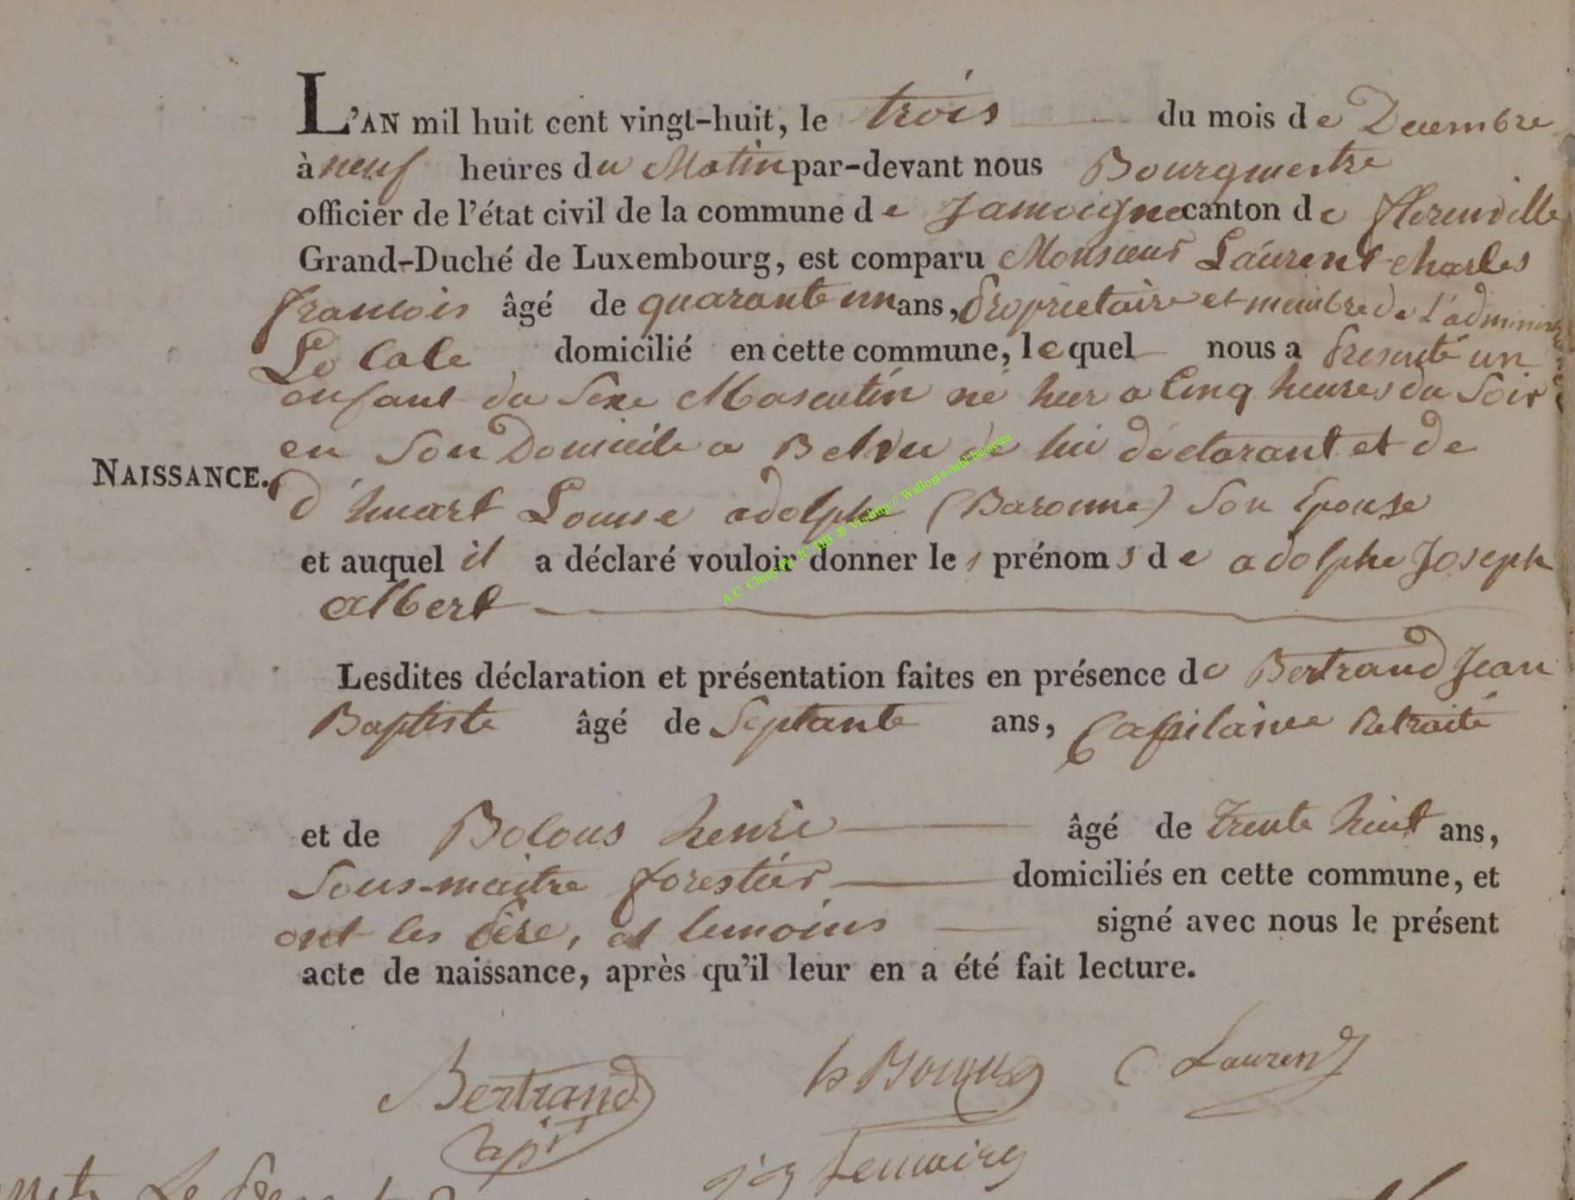 L'AN mil huit cent vingt-huit, le trois du mois de Decembre
à neuf heures du Matin par-devant nous Bourgmestre
officier de l'état civil de la commune de Jamoigne canton de florenville
Grand-Duché de Luxembourg, est comparu Monsieur Laurent charles
francois âgé de quarante un ans, Proprietaire et membre de L'administ
Locale domicilié en cette commune, lequel nous a Presenté un
enfant du Sexe Masculin né hier a Cinq heures du Soir
en Son Domicile a Belvu de lui déclarant et de
NAISSANCE. d'huart Louise adolphe (Baronne) Son Epouse
et auquel il a déclaré vouloir donner les prénoms de adolphe Joseph
albert
Lesdites déclaration et présentation faites en présence de Bertrand Jean
Baptiste âgé de Septante ans, Capitaine Retraité
et de Bolous henri âgé de trente huit ans,
Sous-maitre forestier domiciliés en cette commune, et
ont les Père, et temoins signé avec nous le présent
acte de naissance, après qu'il leur en a été fait lecture.
Bertrand C Laurent
capit
A.C. Chiny